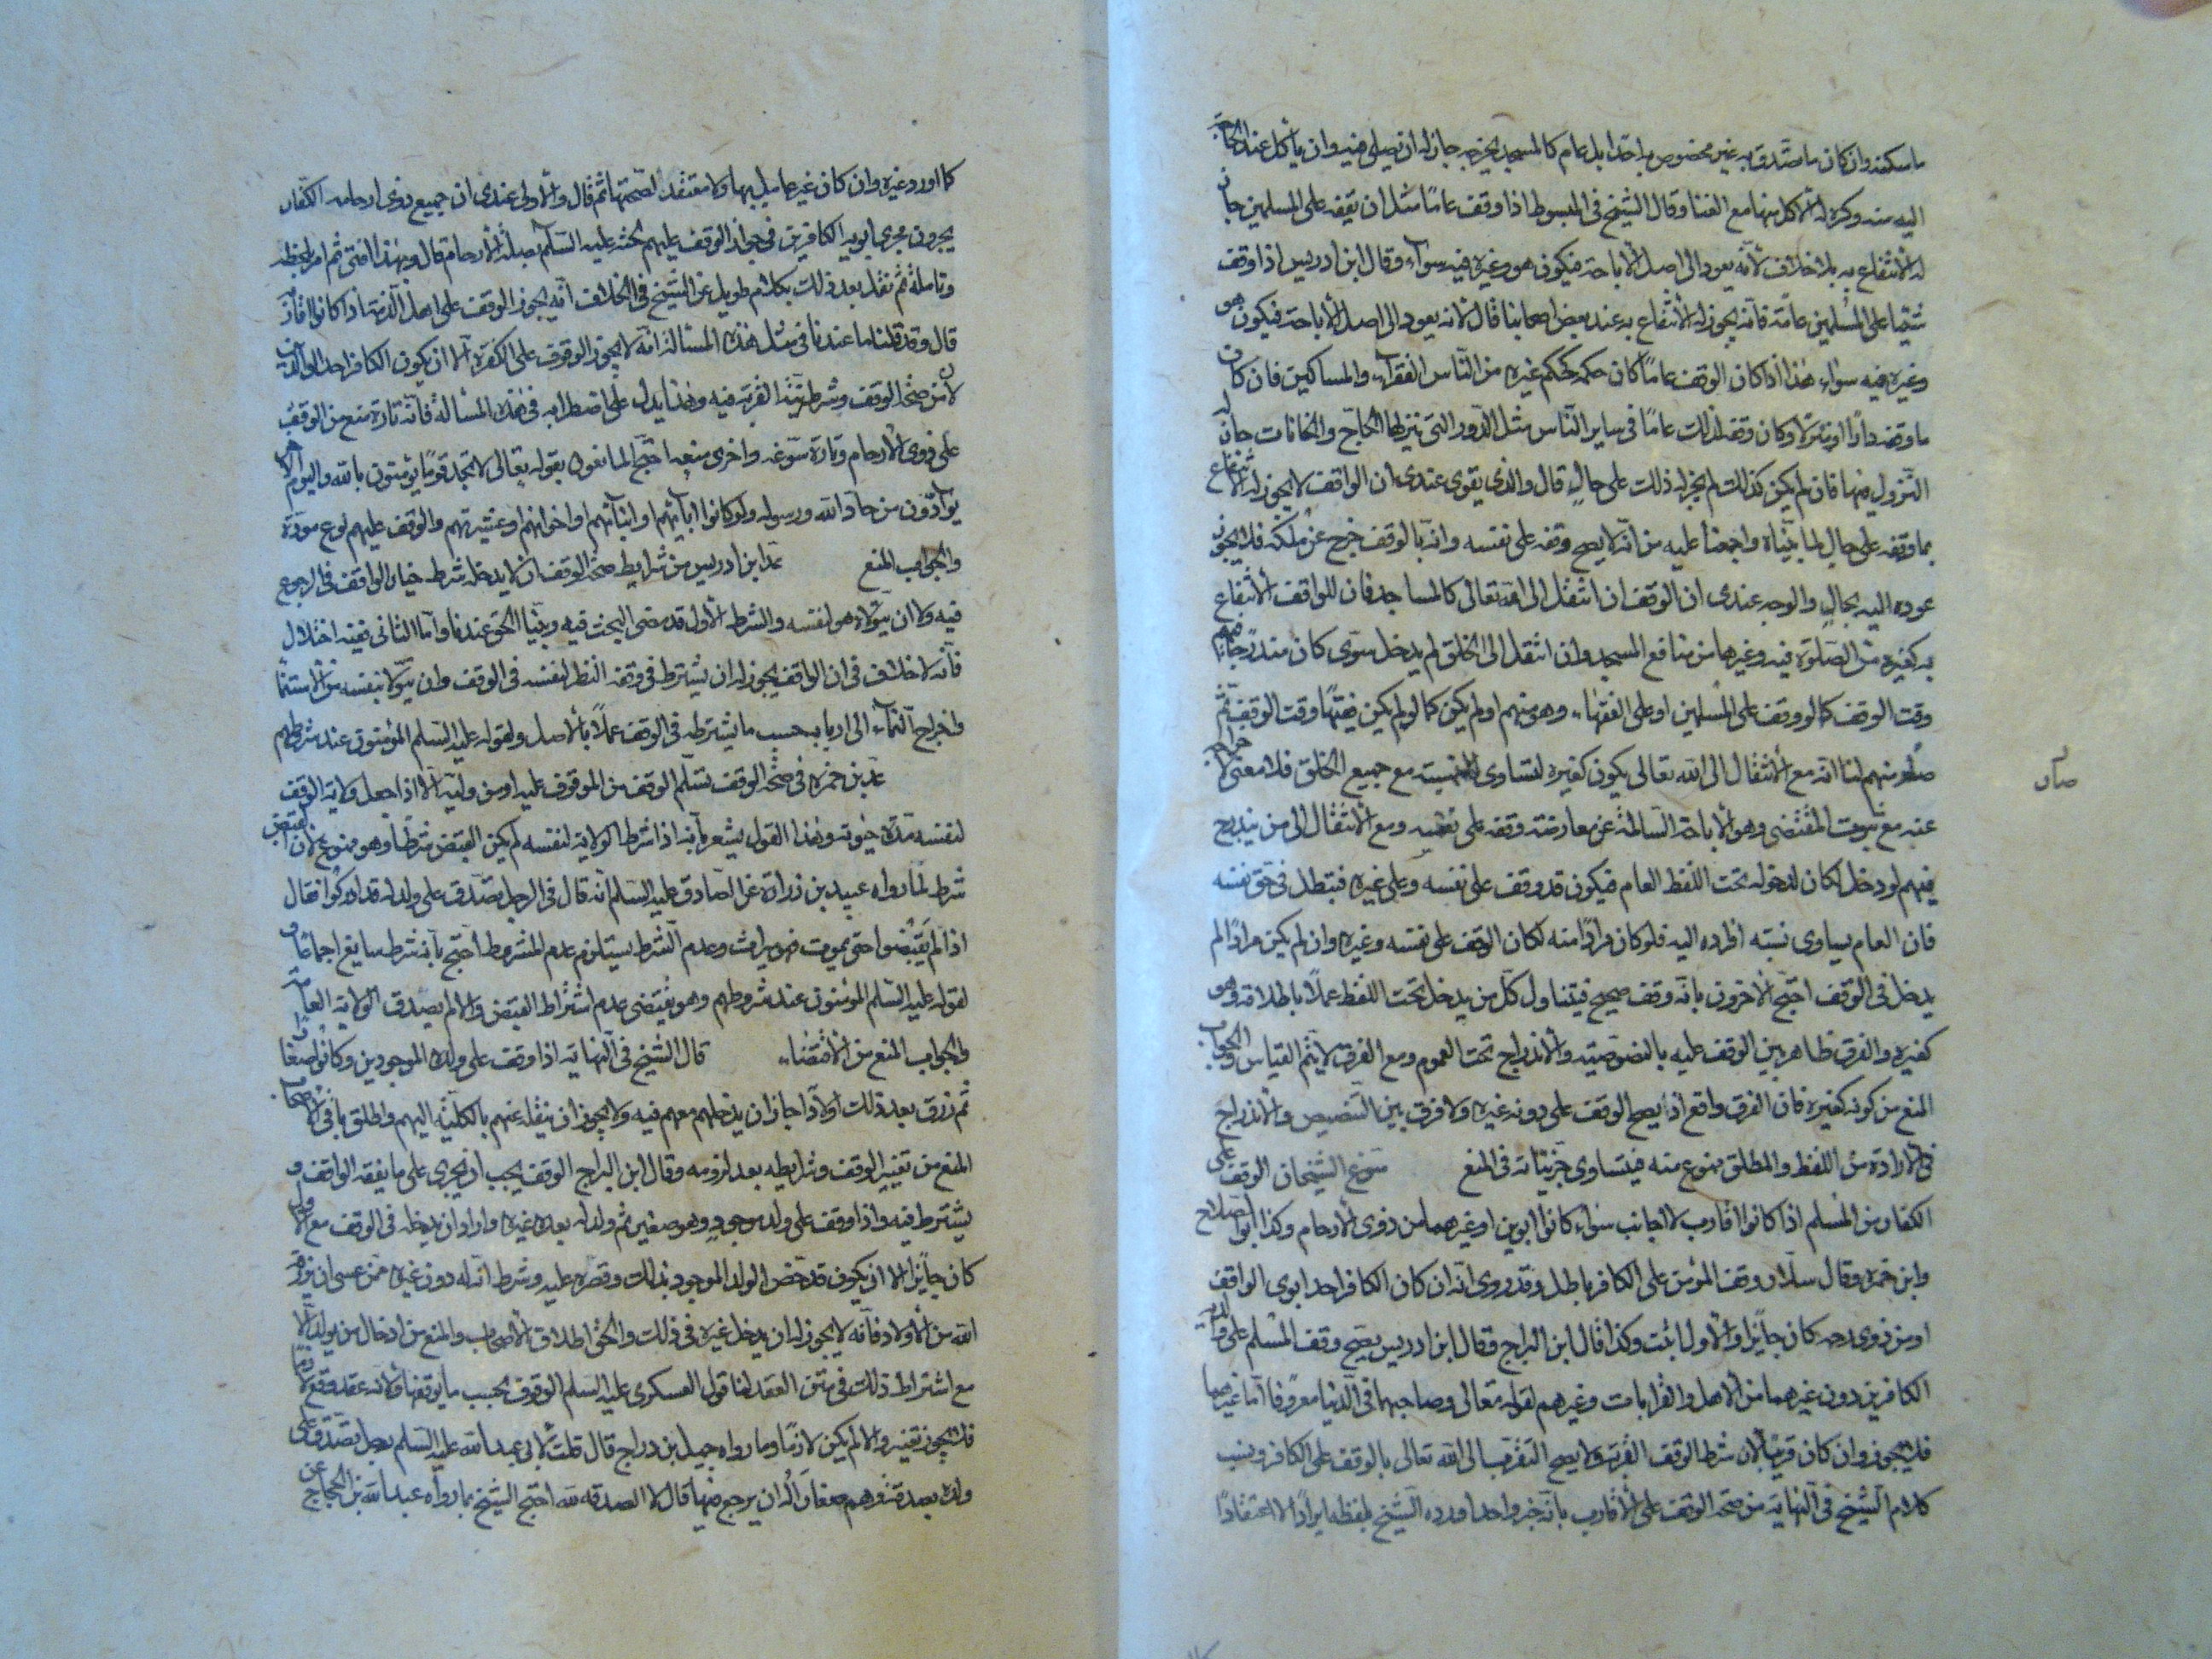 ما سكنه وان كان ما تصدق به غير مخصوص باحد بل عام كالمسجد يخرجه جاز له ان يصلى فيه وان يأكل عند الحاجة
اليه منه وكره له الأكل منها مع الغنا وقال الشيخ فى المبسوط اذا وقف عامًا مثل ان يقفه على المسلمين جاز
له الأنتفاع به بلا خلاف لأنه يعود الى اصل الأباحة فيكون هو وغيره فيه سواء وقال ابن ادريس اذا وقف
شيئا على المسلمين عامّة فانه يجوز له الأنتفاع به عند بعض اصحابنا قال لأنه يعود الى اصل الأباحة فيكون هو
وغيره فيه سواء هذا اذا كان الوقف عامًا كان حكمه كحكم غيره من الناس الفقراء والمساكين فان كان
ما وقفه دارًا او منزلا وكان وقفه لذلك عامًا فى ساير الناس مثل الدور التى ينزلها الحاج والخانات جاز له
النزول فيها فان لم يكن كذلك لم يجز له ذلك على حال قال والذى يقوى عندى ان الواقف لا يجوز له الأنتفاع
بما وقفه على حال لما بيّناه واجمعنا عليه من انه لا يصح وقفه على نفسه وانه بالوقف خرج عن ملكه فلا يجوز
عوده اليه بحال والوجه عندى ان الوقف ان انتقل الى الله تعالى كالمساجد فان للواقف الأنتفاع
به كغيره من الصلوة فيه وغيرها من منافع المسجد وان انتقل الى الخلق لم يدخل سوى كان مندرجا فيهم
وقت الوقف كما لو وقف على المسلمين او على الفقهاء وهو منهم او لم يكن كما لو لم يكن فقيها وقت الوقف ثم
صار منهم لنا انه مع الأنتقال الى الله تعالى يكون كغيره لتساوى النسبة مع جميع الخلق فلا معنى لاخراجه
عنه مع ثبوت المقتضى وهو الأباحة السالمة عن معارضة وقفه على نفسه ومع الأنتقال الى من يندرج
فيهم لو دخل لكان لدخوله تحت اللفظ العام فيكون قد وقف على نفسه وعلى غيره فيبطل فى حق نفسه
فان العام يساوى نسبته افراده اليه فلو كان مرادًا منه لكان الوقف على نفسه وغيره وان لم يكن مرادًا لم
يدخل فى الوقف احتج الأخرون بانه وقف صحيح فيتناول كل من يدخل تحت اللفظ عملا باطلاقه وهو
كغيره والفرق ظاهر بين الوقف عليه بالنصوصية والأندراج تحت العموم ومع الفرق لا يتم القياس والجواب
المنع من كونه كغيره فان الفرق واقع اذ يصح الوقف على دونه غيره ولا فرق بين التنصيص والأندراج
فى الأرادة من اللفظ والمطلق ممنوع منه فيتساوى جزئياته فى المنع سوغ الشيخان الوقف على
الكفار من المسلم اذا كانوا اقارب لا اجانب سواء كانوا ابوين او غيرهما من ذوى الأرحام وكذا ابو الصلاح
وابن حمزه وقال سلار وقف المؤمن على الكافر باطل وقد روى انه ان كان الكافر احد ابوى الواقف
او من ذوى رحمه كان جايزا والأول اثبت وكذا قال ابن البراج وقال ابن ادريس يصح وقف المسلم على والديه
الكافرين دون غيرهما من الأهل والقرابات وغيرهم لقوله تعالى وصاحبهما فى الدنيا معروفا اما غيرهما
فلا يجوز وان كان قريبا لأن شرط الوقف القربة ولا يصح التقرب الى الله تعالى بالوقف على الكافر ونسب
كلام الشيخ فى النهاية من صحة الوقف على الأقارب بانه خبر واحد اورده الشيخ بلفظه ايرادًا لا اعتقادًا
صار
كما اورد غيره وان كان غير عامل بها ولا معتقد لصحتها ثم قال والأولى عندى ان جميع ذوى ارحامه الكفار
يجرون مجرى ابويه الكافرين فى جواز الوقف عليهم لحثه عليه السلم بصلة الأرحام قال وبهذا افتى ثم امر بلحظه
وتأمله ثم نقل بعد ذلك بكلام طويل عن الشيخ فى الخلاف انه يجوز الوقف على اهل الذمة اذا كانوا اقاربه
قال وقد قلنا ما عندنا فى مثل هذه المسألة انه لا يجوز الوقوف على الكفرة الا ان يكون الكافر احد الوالدين
لأن من صحة الوقف وشرطه نية القربة فيه وهذا يدل على اضطرابه فى هذه المسألة فانه تارة منع من الوقف
على ذوى الأرحام وتارة سوّغه واخرى منعه احتج المانعون بقوله تعالى لا تجد قومًا يؤمنون بالله واليوم الاخر
يوادّون من حادّ الله ورسوله ولو كانوا ابائهم او ابنائهم او اخوانهم او عشيرتهم والوقف عليهم نوع مودّة
والجواب المنع عدّ ابن ادريس من شرايط صحة الوقف ان لا يدخله شرط خيار الواقف فى الرجوع
فيه ولا ان يتولاه هو لنفسه والشرط الأول قد مضى البحث فيه وبيّنا الحق عندنا واما الثانى ففيه اختلال
فانه لا خلاف فى ان الواقف يجوز له ان يشترط فى وقفه النظر لنفسه فى الوقف وان يتولا بنفسه من الاستنماء
واخراج النماء الى اربابه حسب ما يشترطه فى الوقف عملًا بالأصل ولقوله عليه السلم المؤمنون عند شروطهم
عدّ بن حمزه فى صحة الوقف تسلم الوقف من الموقوف عليه او من وليه الا اذا جعل ولاية الوقف
لنفسه مدة حيوته وهذا القول يشعر بانه اذا شرط الولاية لنفسه لم يكن القبض شرطًا وهو ممنوع لأن القبض
شرط لما رواه عبيد بن زرارة عن الصادق عليه السلم انه قال فى الرجل تصدق على ولد له قد ادركوا فقال
اذا لم يقبضوا حتى يموت فهو ميراث وعدم الشرط يستلزم عدم المشروط احتج بانه شرط سايغ اجماعًا و
لقوله عليه السلم المؤمنون عند شروطهم وهو يقتضى عدم اشتراط القبض والا لم يصدق الولاية العامة
والجواب المنع من الأقتضاء قال الشيخ فى النهاية اذا وقف على ولده الموجودين وكانوا صغارا
ثم رزق بعد ذلك اولادًا جاز ان يدخلهم معهم فيه ولا يجوز ان ينقله عنهم بالكلية اليهم واطلق باقى الأصحاب
المنع من تغيير الوقف وشرايطه بعد لزومه وقال ابن البراج الوقف يجب ان يجرى على ما يقفه الواقف و
يشترط فيه واذا وقف على ولد موجود وهو صغير ثم ولد له بعده غيره واراد ان يدخله فى الوقف مع الأول
كان جايزا الا ان يكون قد خصّ الولد الموجود بذلك وقصره عليه وشرط انه له دون غيره ممن عسى ان يرزقه
الله من الأولاد فانه لا يجوز له ان يدخل غيره فى ذلك والحق اطلاق الأصحاب والمنع من ادخال من يولد الا
مع اشتراط ذلك فى متن العقد لنا قول العسكرى عليه السلم الوقوف بحسب ما يوقفها ولأنه عقد وقع لازمًا
فلا يجوز تغييره والا لم يكن لازمًا وما رواه جميل بن دراج قال قلت لأبى عبد الله عليه السلم رجل تصدق على
ولده بصدقة وهم صغار أله ان يرجع فيها قال لا الصدقة لله احتج الشيخ بما رواه عبد الله بن الحجاج عن